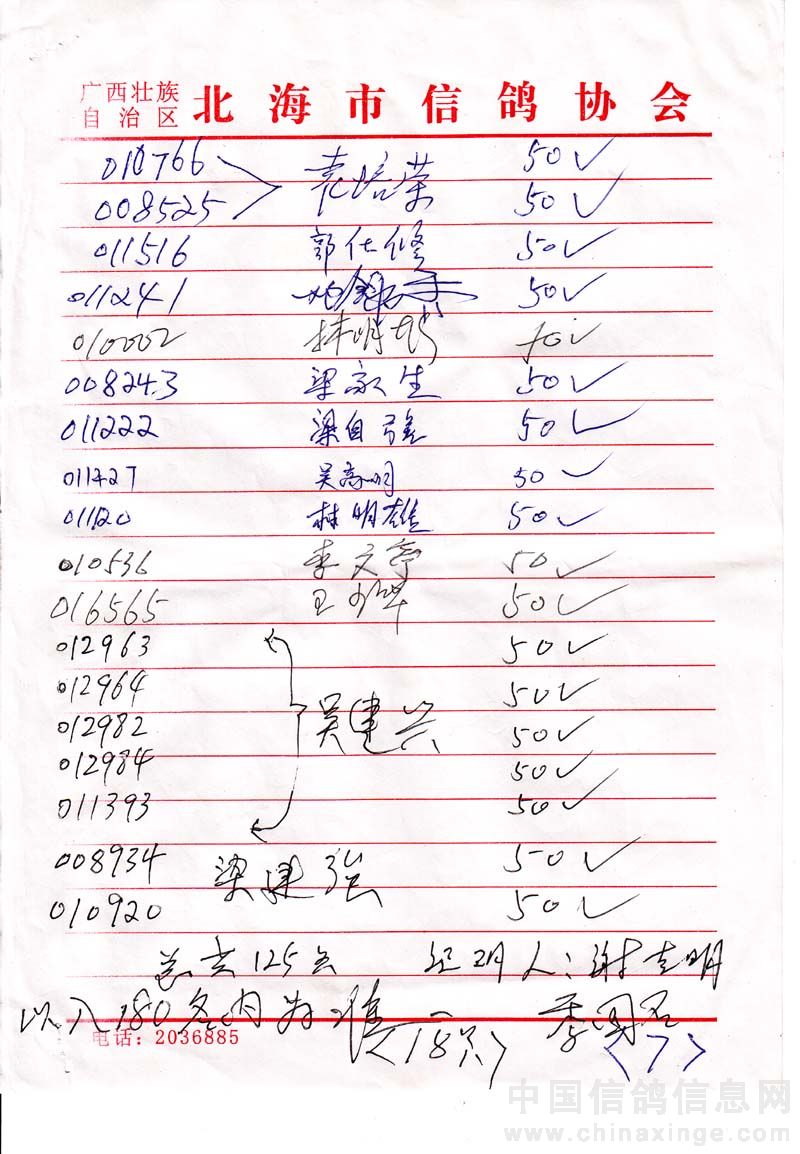 广西壮族
自治区 北海市信鸽协会
010766 袁培荣 50✓
008525 50✓
011516 郭仕修 50✓
011241 50✓
010002 林明 50✓
008243 梁家生 50✓
011222 梁自强 50✓
011427 吴高明 50✓
01120 林明雄 50✓
010536 李文亭 50✓
016565 王少华 50✓
012963 50✓
012964 50✓
012982 吴建兴 50✓
012984 50✓
011393 50✓
008934 梁建强 50✓
010920 50✓
总共125 证明人：谢志明
以入180名内为准 〈18只〉 李国
电话：2036885 〈7〉
中国信鸽信息网
www.chinaxinge.com